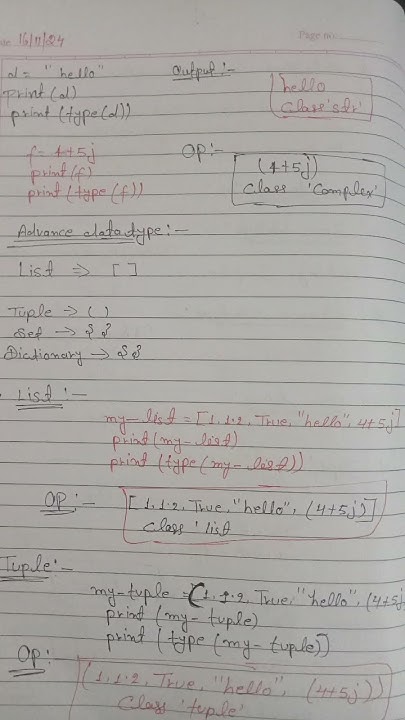 Date 16/11/24
Page No.
d = "hello" Output:-
print(d) hello
print (type(d)) class 'str'
f = 4+5j OP:-
print(f) (4+5j)
print (type (f)) class 'Complex'
Advance data type:-
List => [ ]
Tuple -> ( )
Set -> { }
Dictionary -> { }
List :-
my-list = [1, 1.2, True, "hello", 4+5j]
print (my-list)
print (type (my-list))
OP:- [1, 1.2, True, "hello", (4+5j)]
Class 'list
Tuple:-
my-tuple = (1, 1.2, True, "hello", (4+5j
print (my-tuple)
print (type (my-tuple))
OP:- (1, 1.2, True, "hello", (4+5j))
Class 'tuple'